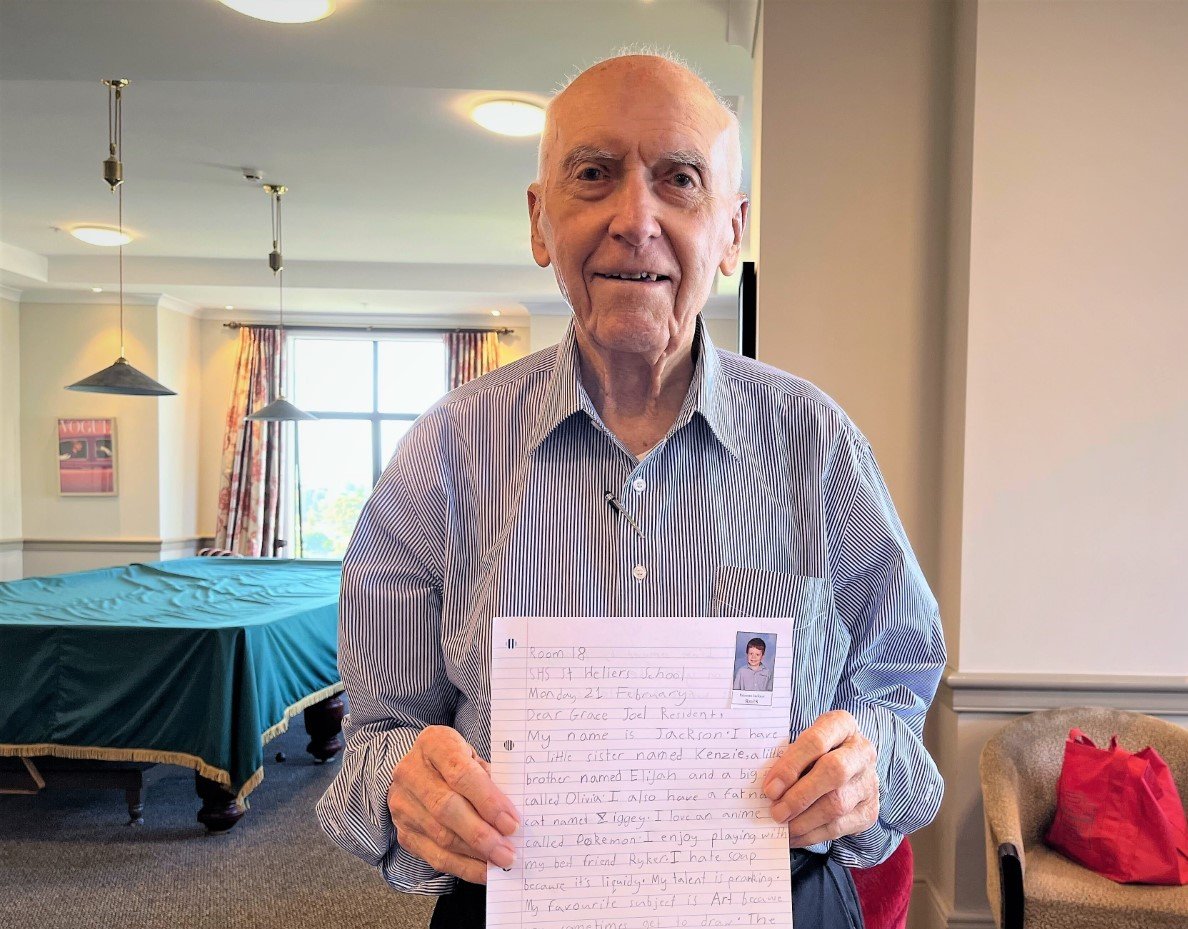 VOGUE
Room 18
SHS St Heliers School
Monday 21 February
Dear Grace Joel Resident,
My name is Jackson. I have
a little sister named Kenzie, a little
brother named Elijah and a big
called Olivia. I also have a fat
cat named Ziggey. I love an anime
called Pokemon. I enjoy playing with
my best friend Ryker. I hate soap
because it's liquidy. My talent is pranking.
My favourite subject is Art because
sometimes get to draw. The